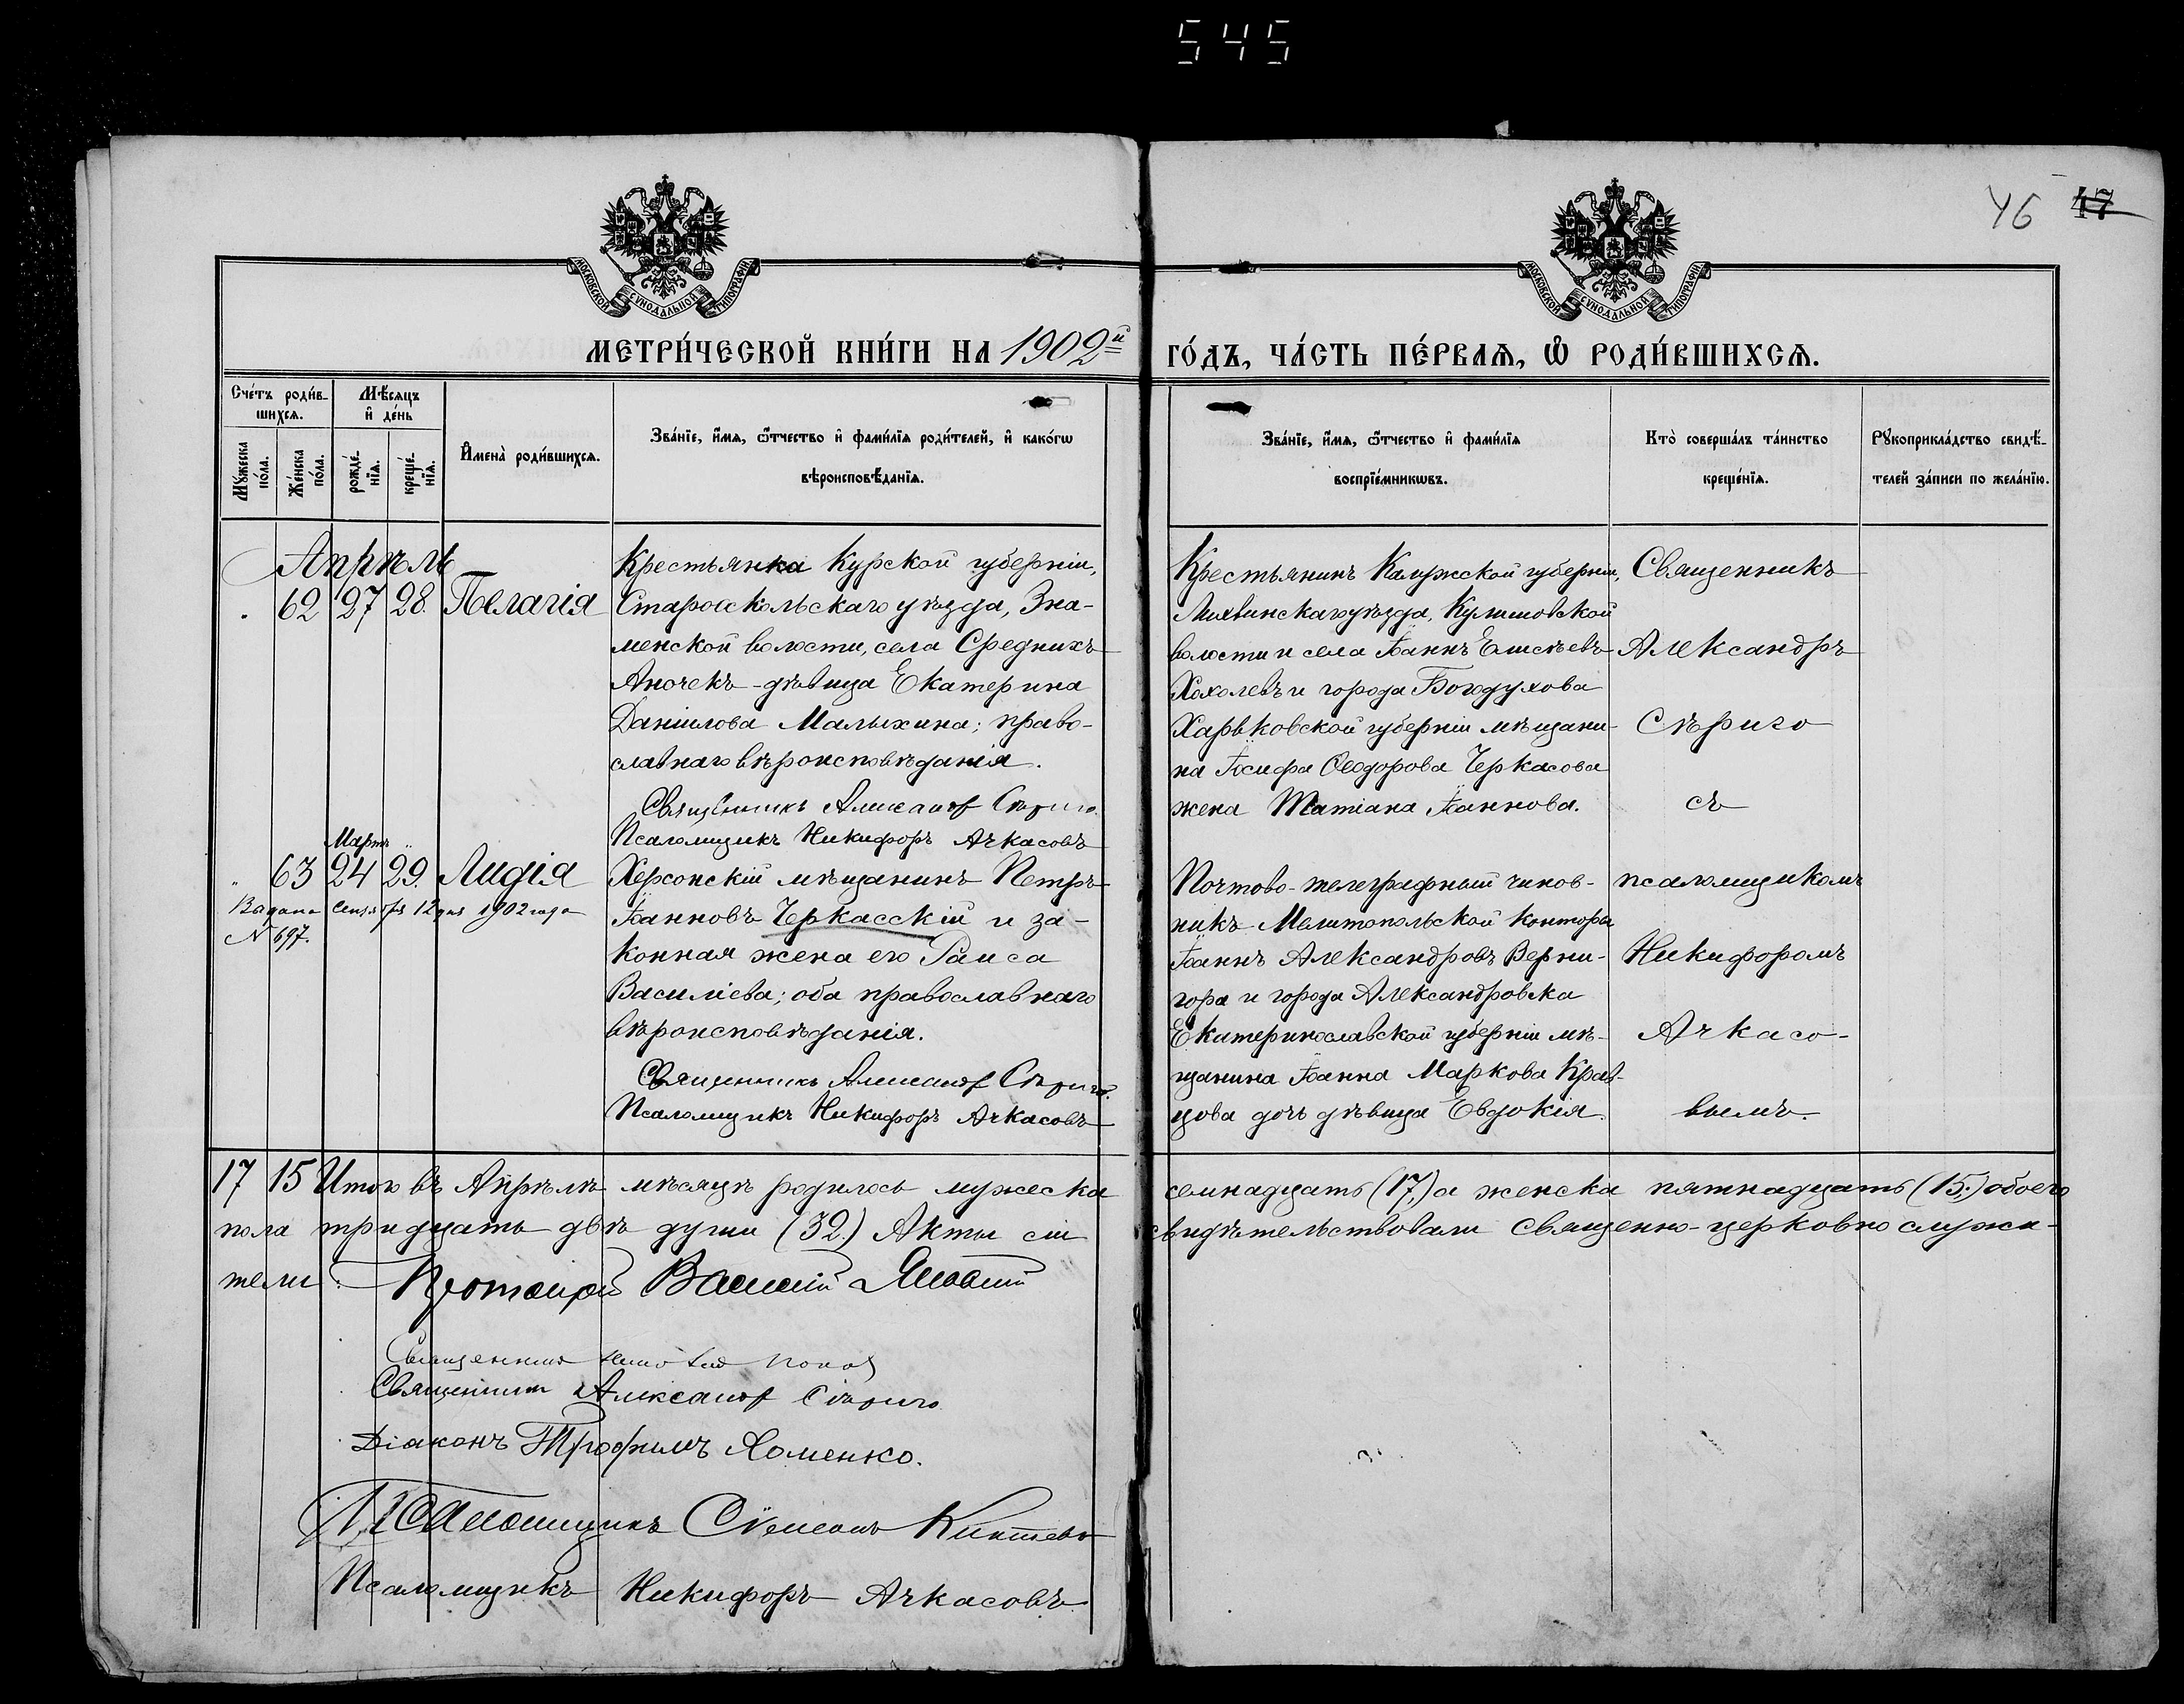 545
46 47
МОСКОВСКОЙ СѴНОДАЛЬНОЙ ТИПОГРАФІИ
МОСКОВСКОЙ СѴНОДАЛЬНОЙ ТИПОГРАФІИ
МЕТРИ́ЧЕСКОЙ КНИ́ГИ НА 1902й ГО́ДЪ, ЧА́СТЬ ПЕ́РВАѦ, Ѽ РОДИ́ВШИХСѦ.
Сче́тъ роди́в-
шихсѧ.
Мѣ́сѧцъ
и҆ де́нь
Мꙋ́жеска
по́ла.
Же́нска
по́ла.
рожде́-
нїѧ.
креще́-
нїѧ.
И҆мена̀ роди́вшихсѧ.
Зва́нїе, и҆́мѧ, ѻ҆́тчество и҆ фами́лїѧ роди́телей, и҆ како́гѡ
вѣроисповѣ́данїѧ.
Зва́нїе, и҆́мѧ, ѻ҆́тчество и҆ фами́лїѧ
воспрїе́мникѡвъ.
Кто̀ соверша́лъ та́инство
креще́нїѧ.
Рꙋкоприкла́дство свидѣ́-
телей за́писи по жела́нїю.
Апрѣль
62 27 28. Пелагія
Крестьянка Курской губерніи,
Старооскольскаго уѣзда, Зна-
менской волости, села Среднихъ
Апочекъ - дѣвица Екатерина
Даніилова Малыхина; право-
славнаго вѣроисповѣданія.
Священникъ Александр Сѣриго.
Псаломщикъ Никифоръ Ачкасовъ
Крестьянинъ Калужской губерніи,
Лихвинскаго уѣзда, Кулешовской
волости и села Іоаннъ Елисѣевъ
Хохолевъ и города Богодухова
Харьковской губерніи мѣщани-
на Іосифа Ѳеодорова Черкасова
жена Татіана Іоаннова.
Священникъ
Александръ
Сѣриго
съ
Мартъ
63 24 29. Лидія
Выдана Сентября 12 дня 1902 года
№ 697.
Херсонскій мѣщанинъ Петръ
Іоанновъ Черкасскій и за-
конная жена его Раиса
Василіева; оба православнаго
вѣроисповѣданія.
Священникъ Александр Сѣриго.
Псаломщикъ Никифоръ Ачкасовъ
Почтово-телеграфный чинов-
никъ Мелитопольской конторы
Іоаннъ Александровъ Верни-
гора и города Александровска
Екатеринославской губерніи мѣ-
щанина Іоанна Маркова Крав-
цова дочь дѣвица Евдокія.
псаломщикомъ
Никифоромъ
Ачкасо-
вымъ.
17 15 Итого въ Апрѣлѣ мѣсяцѣ родилось мужеска семнадцать (17,) а женска пятнадцать (15;) обоего
пола тридцать двѣ души (32.) Акты сіи свидѣтельствовали Священно-церковно служи-
тели:
Протоіерей Василій
Священникъ Попов
Священникъ Александр Сѣриго
Діаконъ Трофимъ Хоменко.
Псаломщикъ Сѵмеонъ
Псаломщикъ Никифоръ Ачкасовъ